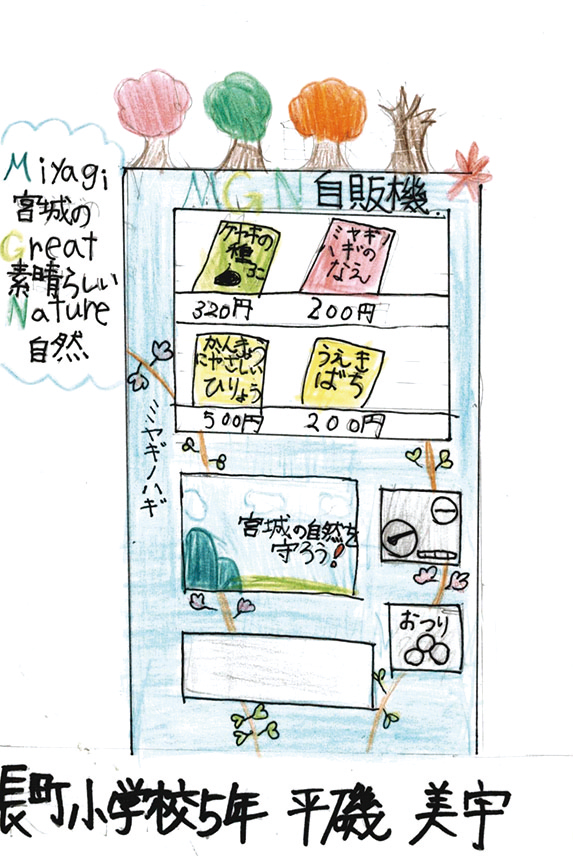 Miyagi
宮城の
Great
素晴らしい
Nature
自然
MGN 自販機
ケヤキの
種
3こ
ミヤギノ
ハギの
なえ
320円 200円
かんきょう
にやさしい
ひりょう
うえき
ばち
500円 200円
ミヤギノハギ
宮城の自然を
守ろう!
おつり
長町小学校5年 平磯 美宇